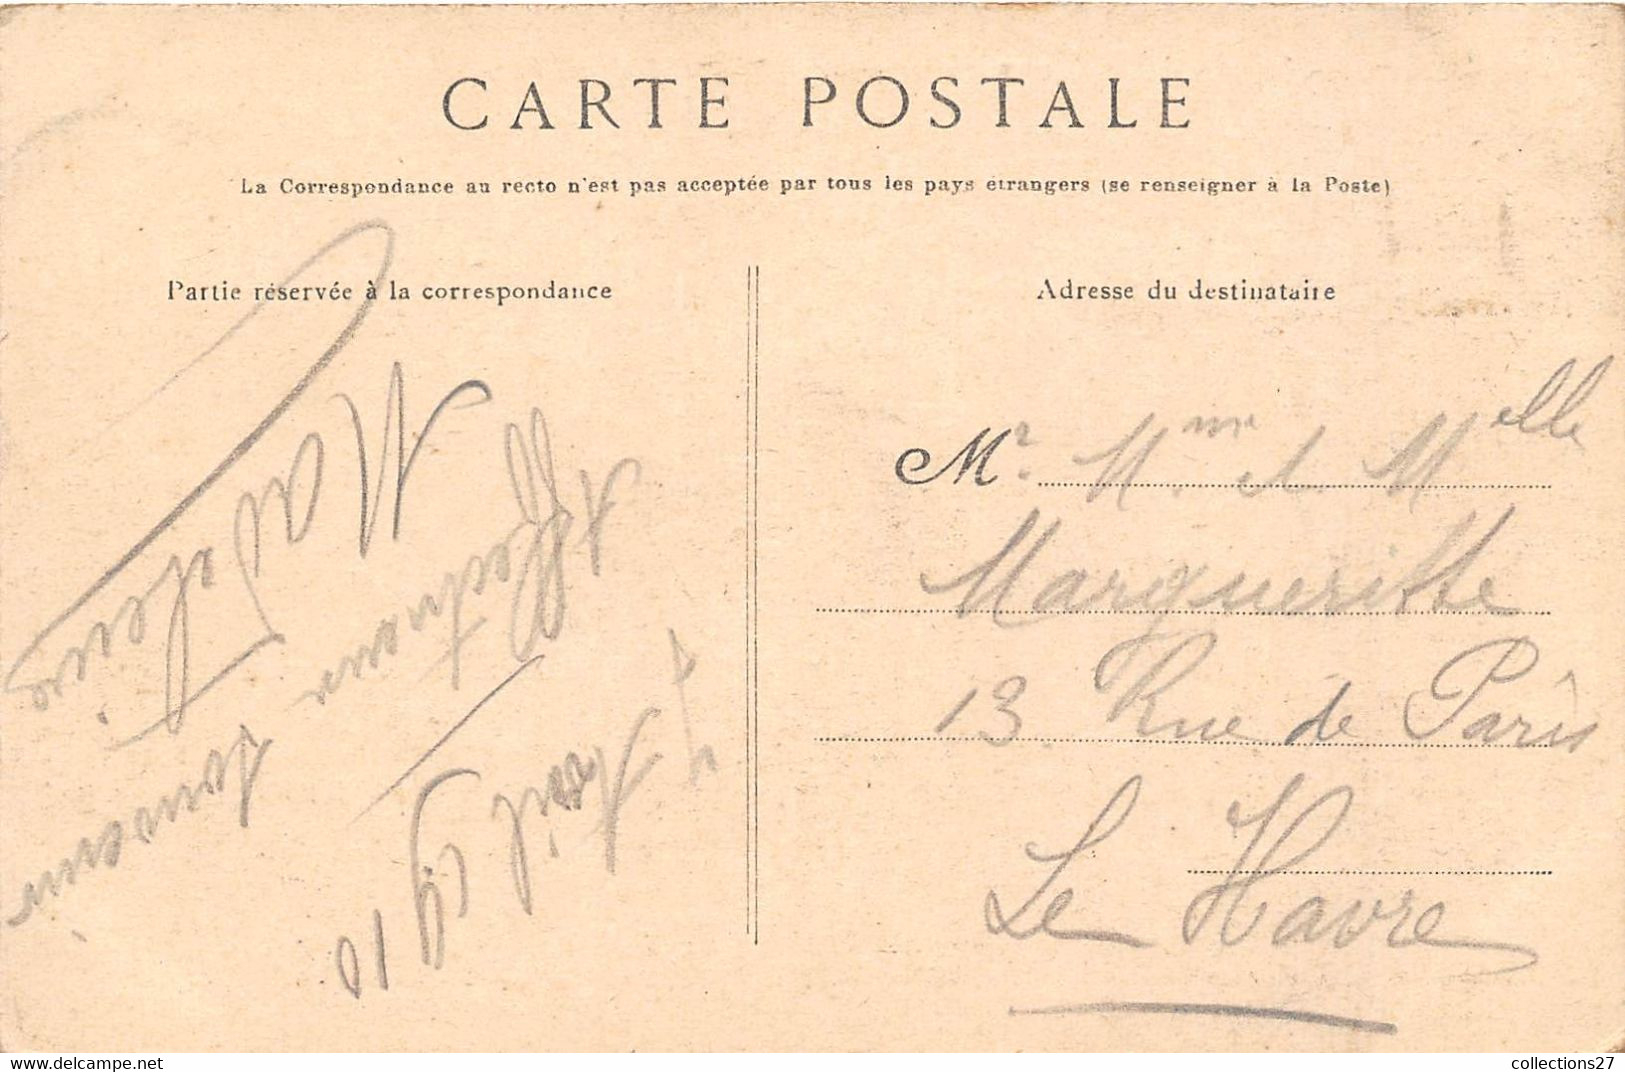 CARTE POSTALE
La Correspondance au recto n'est pas acceptée par tous les pays étrangers (se renseigner à la Poste)
Partie réservée à la correspondance
Adresse du destinataire
Mr. Mme et Melle
Margueritte
13 Rue de Paris
Le Havre
Août 1910
Affectueux souvenir
delcampe.net
collections27